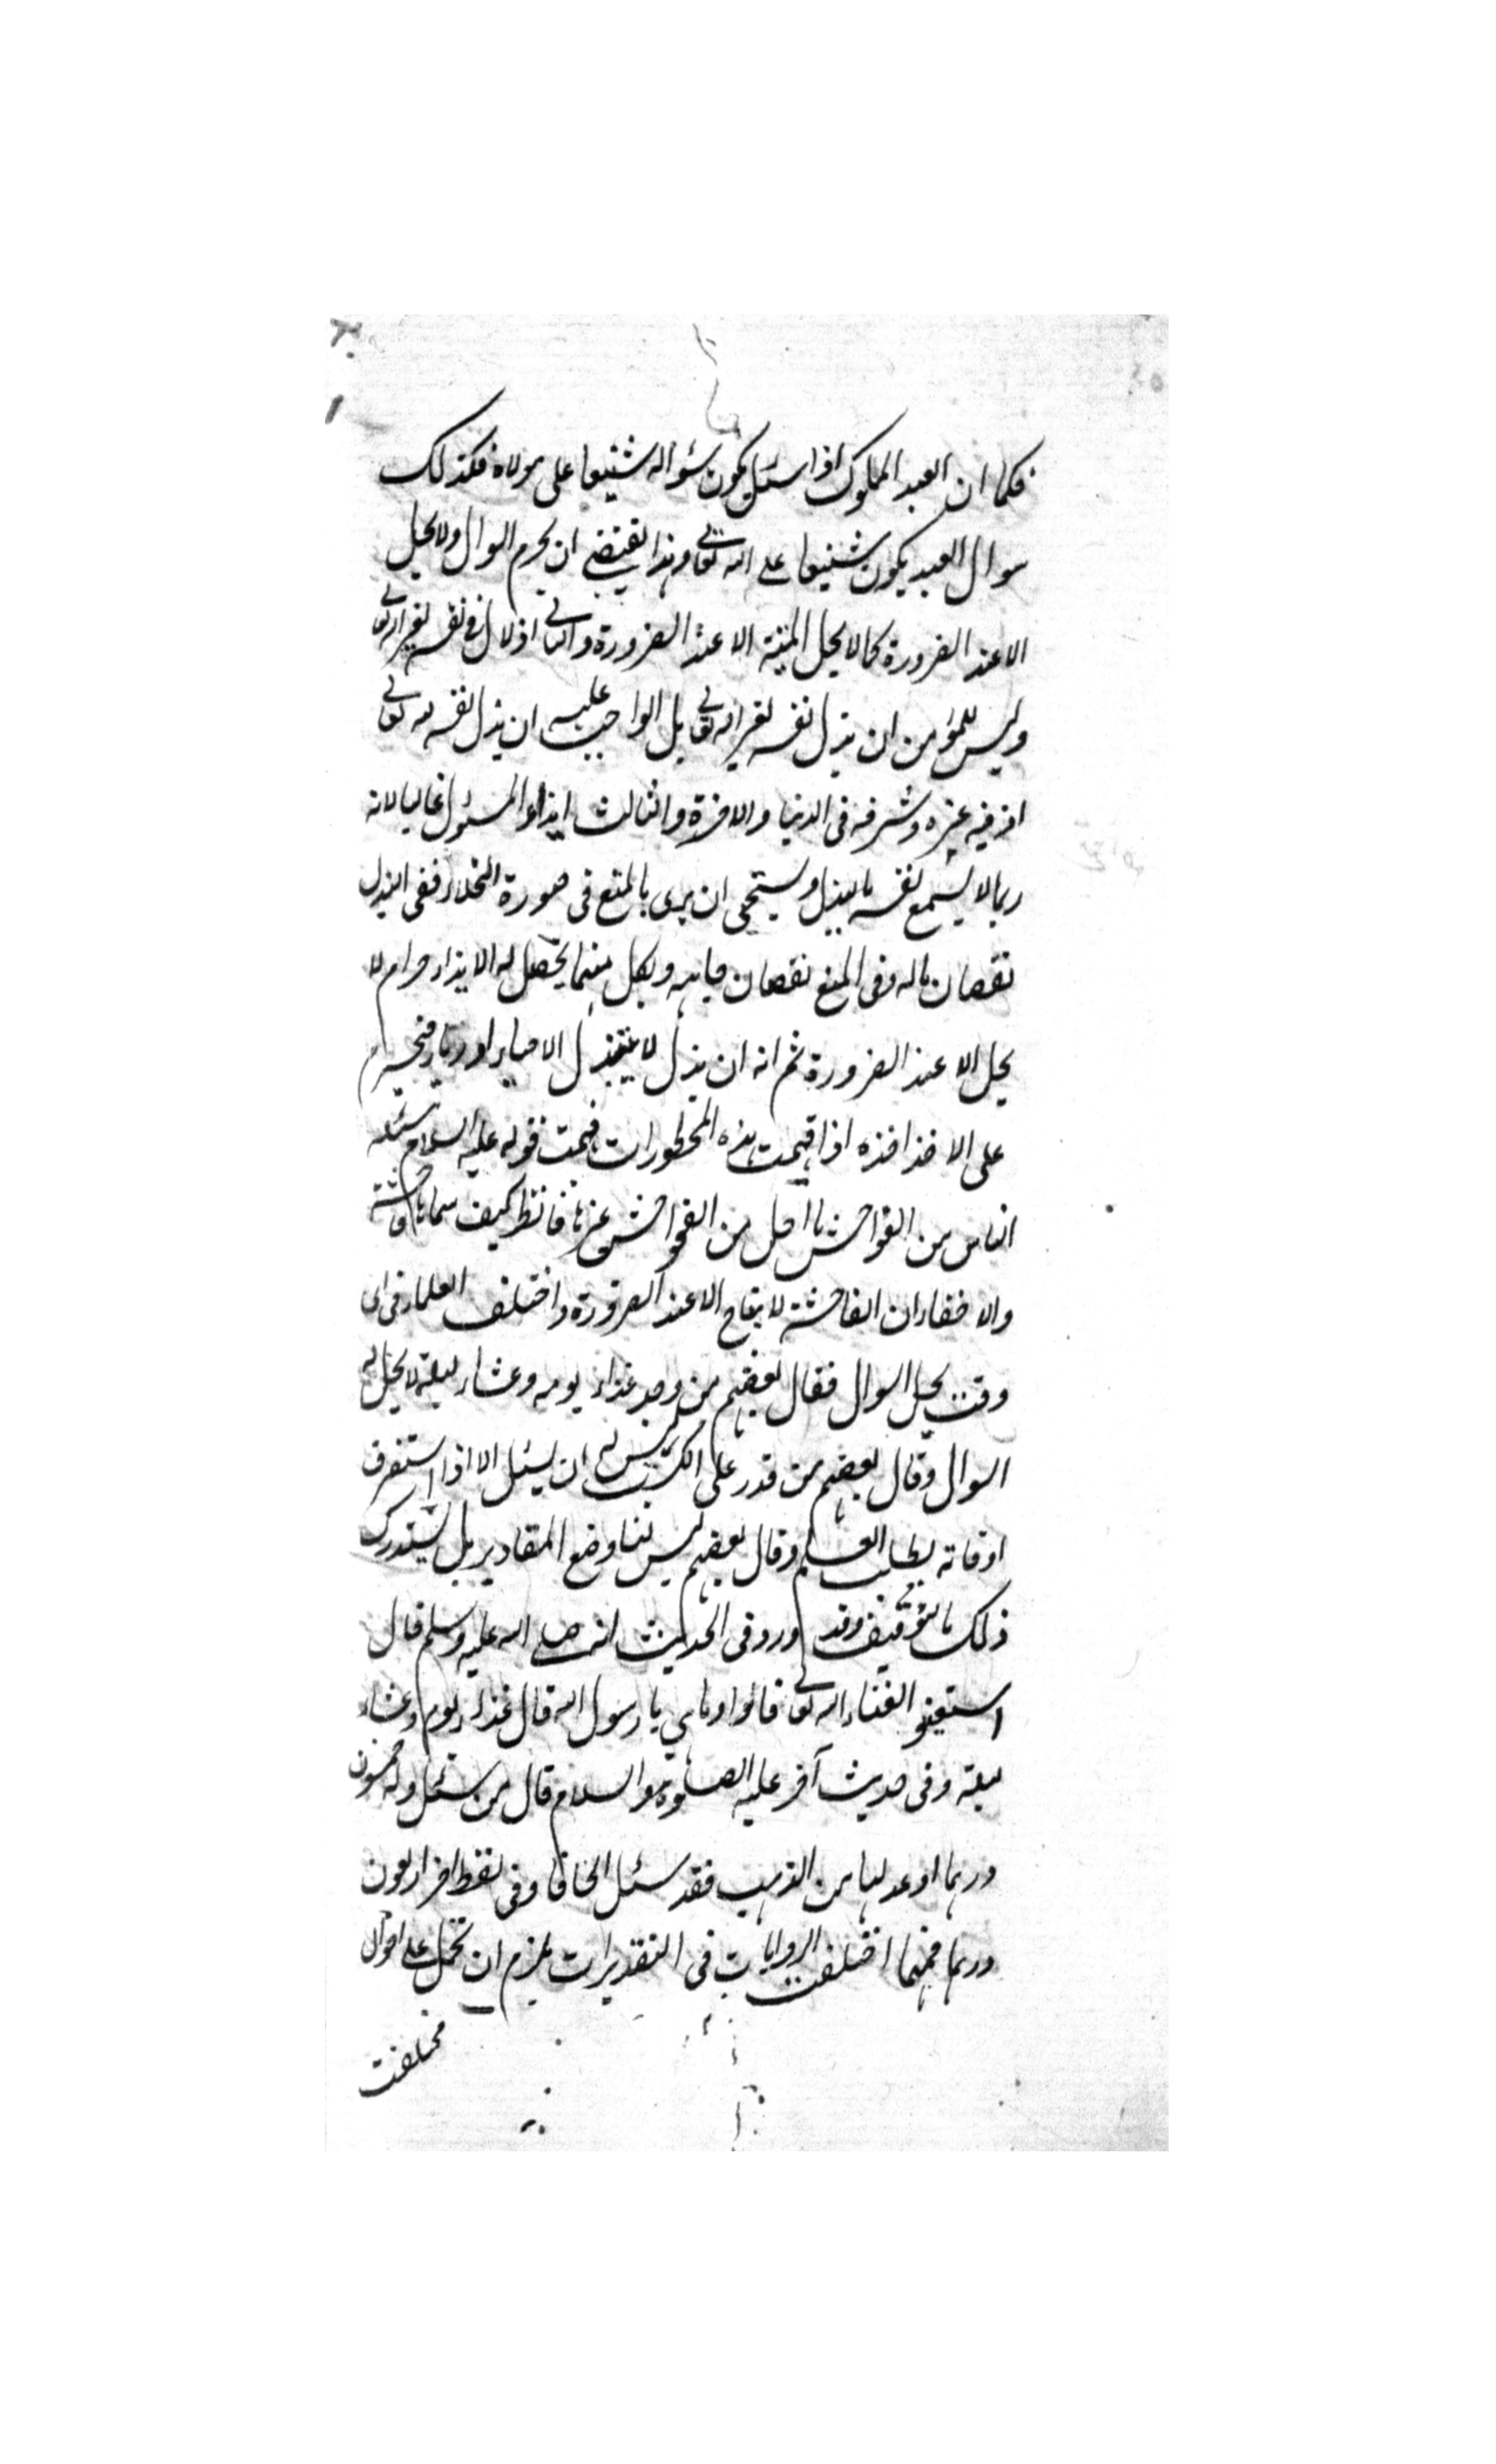 فكما ان العبد المملوك اذا سئل يكون سئواله شنيعا على مولاه فكذلك
سوال العبد يكون شنيعا على الله تعالى وهذا يقتضى ان يحرم السوال ولا يحل
الا عند الضرورة كما لا يحل الميتة الا عند الضرورة والثانى اذلال فى نفسه لغير الله تعالى
وليس للمؤمن ان يذل نفسه لغير الله تعالى بل الواجب عليه ان يذل نفسه لله تعالى
اذ فيه عزه وشرفه فى الدنيا والاخرة والثالث ايذاء المسئول غاليا لانه
ربما لا يسمع نفسه بالبذل ويستحى ان يرى بالمنع فى صورة البخلاء ففى البذل
نقصان ماله وفى المنع نقصان جاهه وبكل منهما يحصل له الايذاء حرام لا
يحل الا عند الضرورة ثم انه ان بذل لا يبذل الا حياء او رياء فيحرم
على الاخذ اخذه اذا فهمت هذه المحظورات فهمت قوله عليه السلام مسئلة
الناس من الفواحش ما احل من الفحواحش غيرها فانظر كيف سماها فاحشة
والا خفاء ان الفاحشة لا يباح الا عند الضرورة واختلف العلماء فى اى
وقت يحل السوال فقال بعضهم من وجد غداء يومه وعشاء ليلته لا يحل له
السوال وقال بعضهم من قدر على الكسب ليس له ان يسئل الا اذا استغرق
اوقاته بطلب العلم وقال بعضهم ليس لنا وضع المقادير بل يستدرك
ذلك بالتوقيف وقد ورد فى الحديث انه صلى الله عليه وسلم قال
استغنو الغناء الله تعالى قالوا وماهى يا رسول الله قال غداء يوم وعشاء
ليلة وفى حديث آخر عليه الصلوة والسلام قال من سئل وله خمسون
درهما او عدلها من الذهب فقد سئل الحافا وفى لفظ اخر اربعون
درهما فمهما اختلفت الروايات فى التقديرات يلزم ان تحمل على احوال
مختلفة